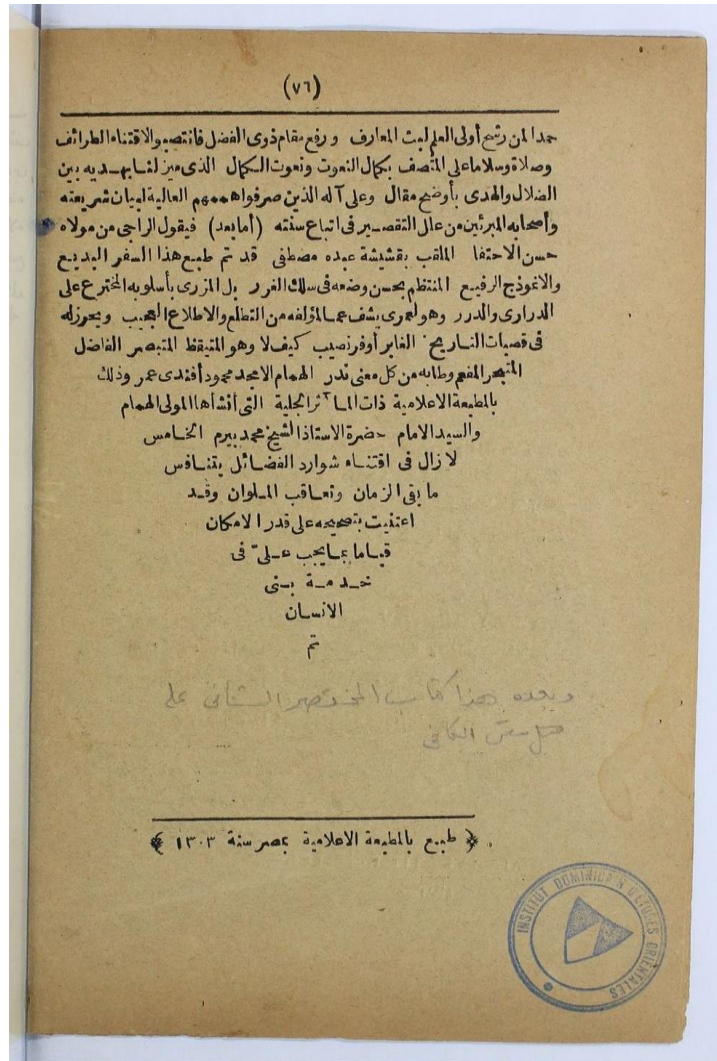 (٧٦)
حمدا لمن رشح أولى العلم لبث المعارف ورفع مقام ذوى الفضل فانتصبوا لاقتناء الطرائف
وصلاة وسلاما على المتصف بكمال النعوت ونعوت الكمال الذى ميز لنا بهديه بين
الضلال والهدى بأوضح مقال وعلى آله الذين صرفوا هممهم العالية لبيان شريعته
وأصحابه المبرئين من علل التقصير فى اتباع سنته (أما بعد) فيقول الراجى من مولاه
حسن الاحتفا الملقب بقشيشة عبده مصطفى قد تم طبع هذا السفر البديع
والانموذج الرفيع المنتظم بحسن وضعه فى سلك الغرر بل المزرى بأسلوبه المخترع على
الدرارى والدرر وهو لعمرى يشف عما لمؤلفه من التطلع والاطلاع العجيب ويحرز له
فى قصبات التاريخ الغابر أوفر نصيب كيف لا وهو المتيقظ المتبصر الفاضل
المتبحر المفعم وطابه من كل معنى ندر الهمام الامجد محمود أفندى عمر وذلك
بالمطبعة الاعلامية ذات المآثر الجلية التى أنشأها المولى الهمام
والسيد الامام حضرة الاستاذ الشيخ محمد بيرم الخامس
لا زال فى اقتناء شوارد الفضائل يتنافس
ما بقى الزمان وتعاقب الملوان وقد
اعتنيت بتصحيحه على قدر الامكان
قياما بما يجب علىّ فى
خدمة بنى
الانسان
تم
وبعده هذا كتاب المختصر الشافى على
متن الكافى
﴿ طبع بالمطبعة الاعلامية بمصر سنة ١٣٠٣ ﴾
INSTITUT DOMINICAIN D'ETUDES ORIENTALES